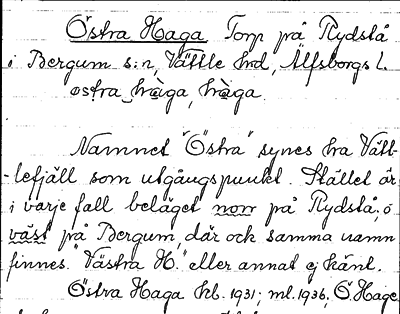 Östra Haga Torp på Rydstå
i Bergum s:n, Vättle hrd, Älfsborgs l.
østra hàga, hàga.
Namnet "Östra" synes ha Vätt-
-lefjäll som utgångspunkt. Stället är
i varje fall beläget norr på Rydstå, o
väst på Bergum, där och samma namn
finnes. "Västra H." eller annat ej känt.
Östra Haga kb. 1931; ml. 1936, Ö. Hage